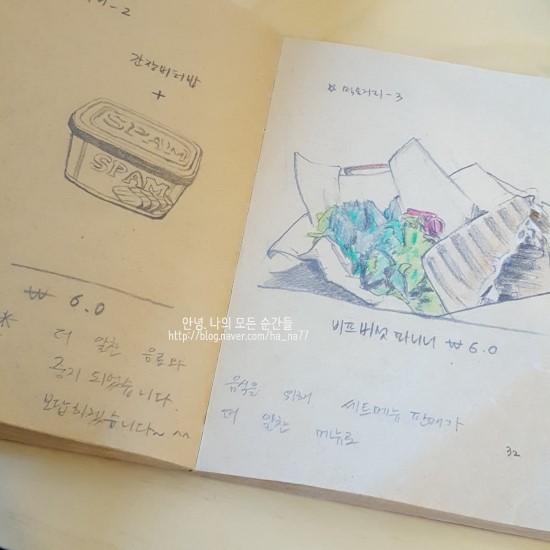 -2
간장버터밥
+
SPAM
SPAM
₩ 6.0
* 더 알찬 음료와
중지 되었습니다.
보답하겠습니다~ ^^
안녕, 나의 모든 순간들
http://blog.naver.com/ha_na77
☆ 먹으거리-3
비프버섯 파니니 ₩ 6.0
음식을 위해 세트메뉴 판매가
더 알찬 메뉴로
32